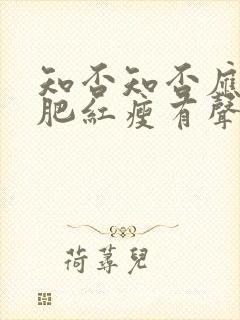 知否知否應
肥紅瘦有聲
荷蕁兒